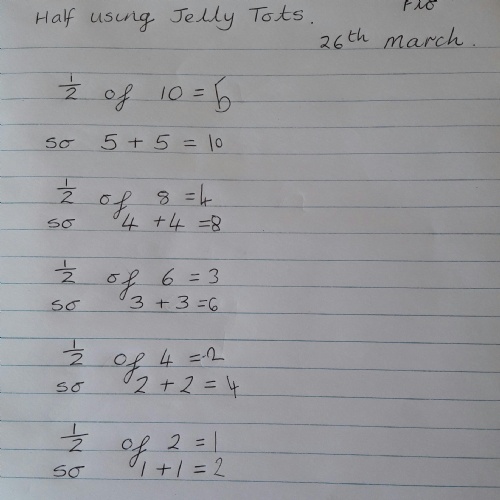 Half using Jelly Tots.
26th march.
1/2 of 10 = 5
so 5 + 5 = 10
1/2 of 8 = 4
so 4 + 4 = 8
1/2 of 6 = 3
so 3 + 3 = 6
1/2 of 4 = 2
so 2 + 2 = 4
1/2 of 2 = 1
so 1 + 1 = 2